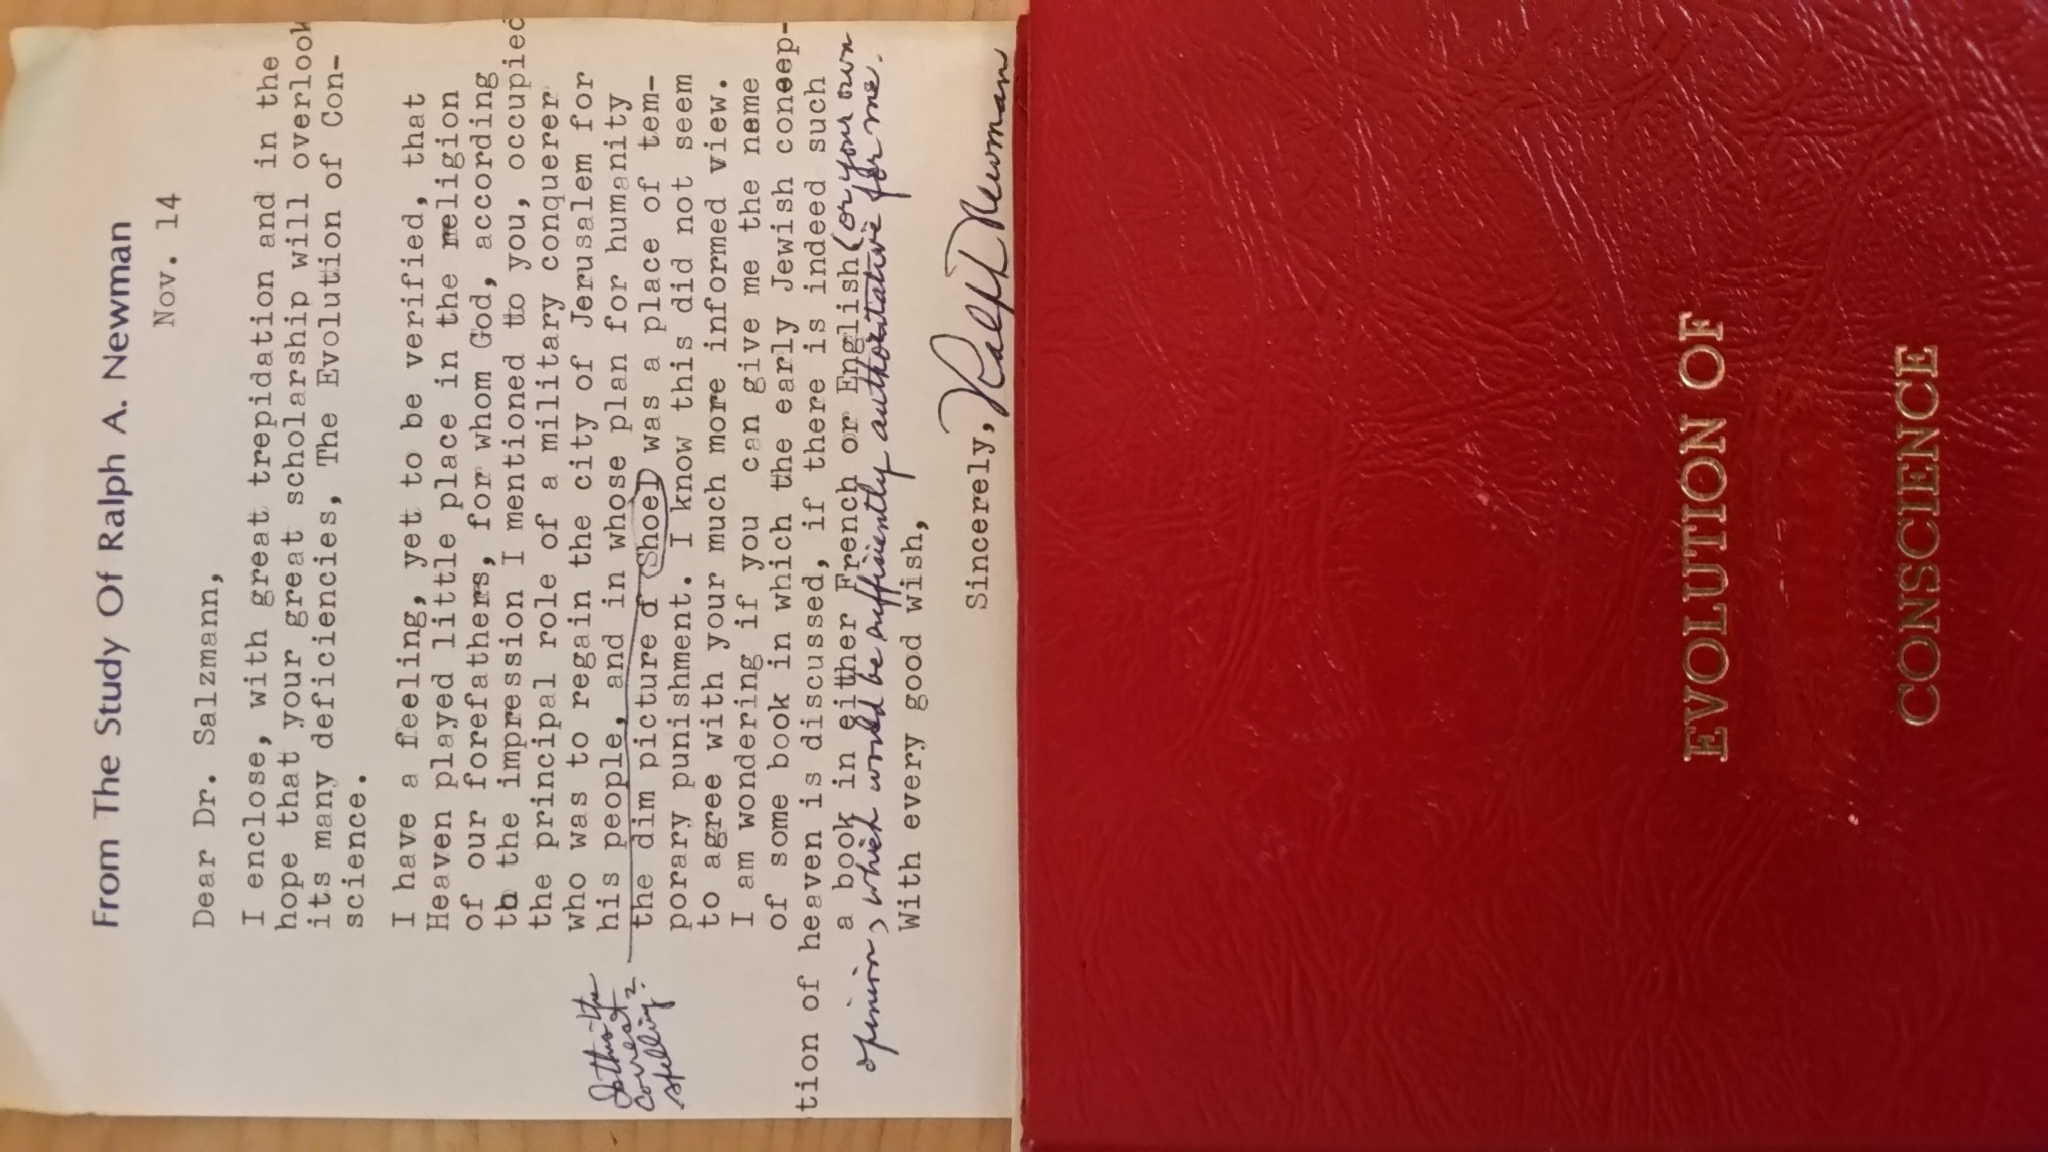 From The Study Of Ralph A. Newman
Nov. 14
Dear Dr. Salzmann,
I enclose, with great trepidation and in the
hope that your great scholarship will overlook
its many deficiencies, The Evolution of Con-
science.
I have a feeling, yet to be verified, that
Heaven played little place in the religion
of our forefathers, for whom God, according
to the impression I mentioned to you, occupied
the principal role of a military conquerer
who was to regain the city of Jerusalem for
his people, and in whose plan for humanity
the dim picture of Shoel was a place of tem-
porary punishment. I know this did not seem
to agree with your much more informed view.
I am wondering if you can give me the name
of some book in which the early Jewish concep-
tion of heaven is discussed, if there is indeed such
a book in either French or English (or your own
opinion, which would be sufficiently authoritative for me.
With every good wish,
Sincerely,
Ralph Newman
Is this the
correct
spelling?
EVOLUTION OF
CONSCIENCE